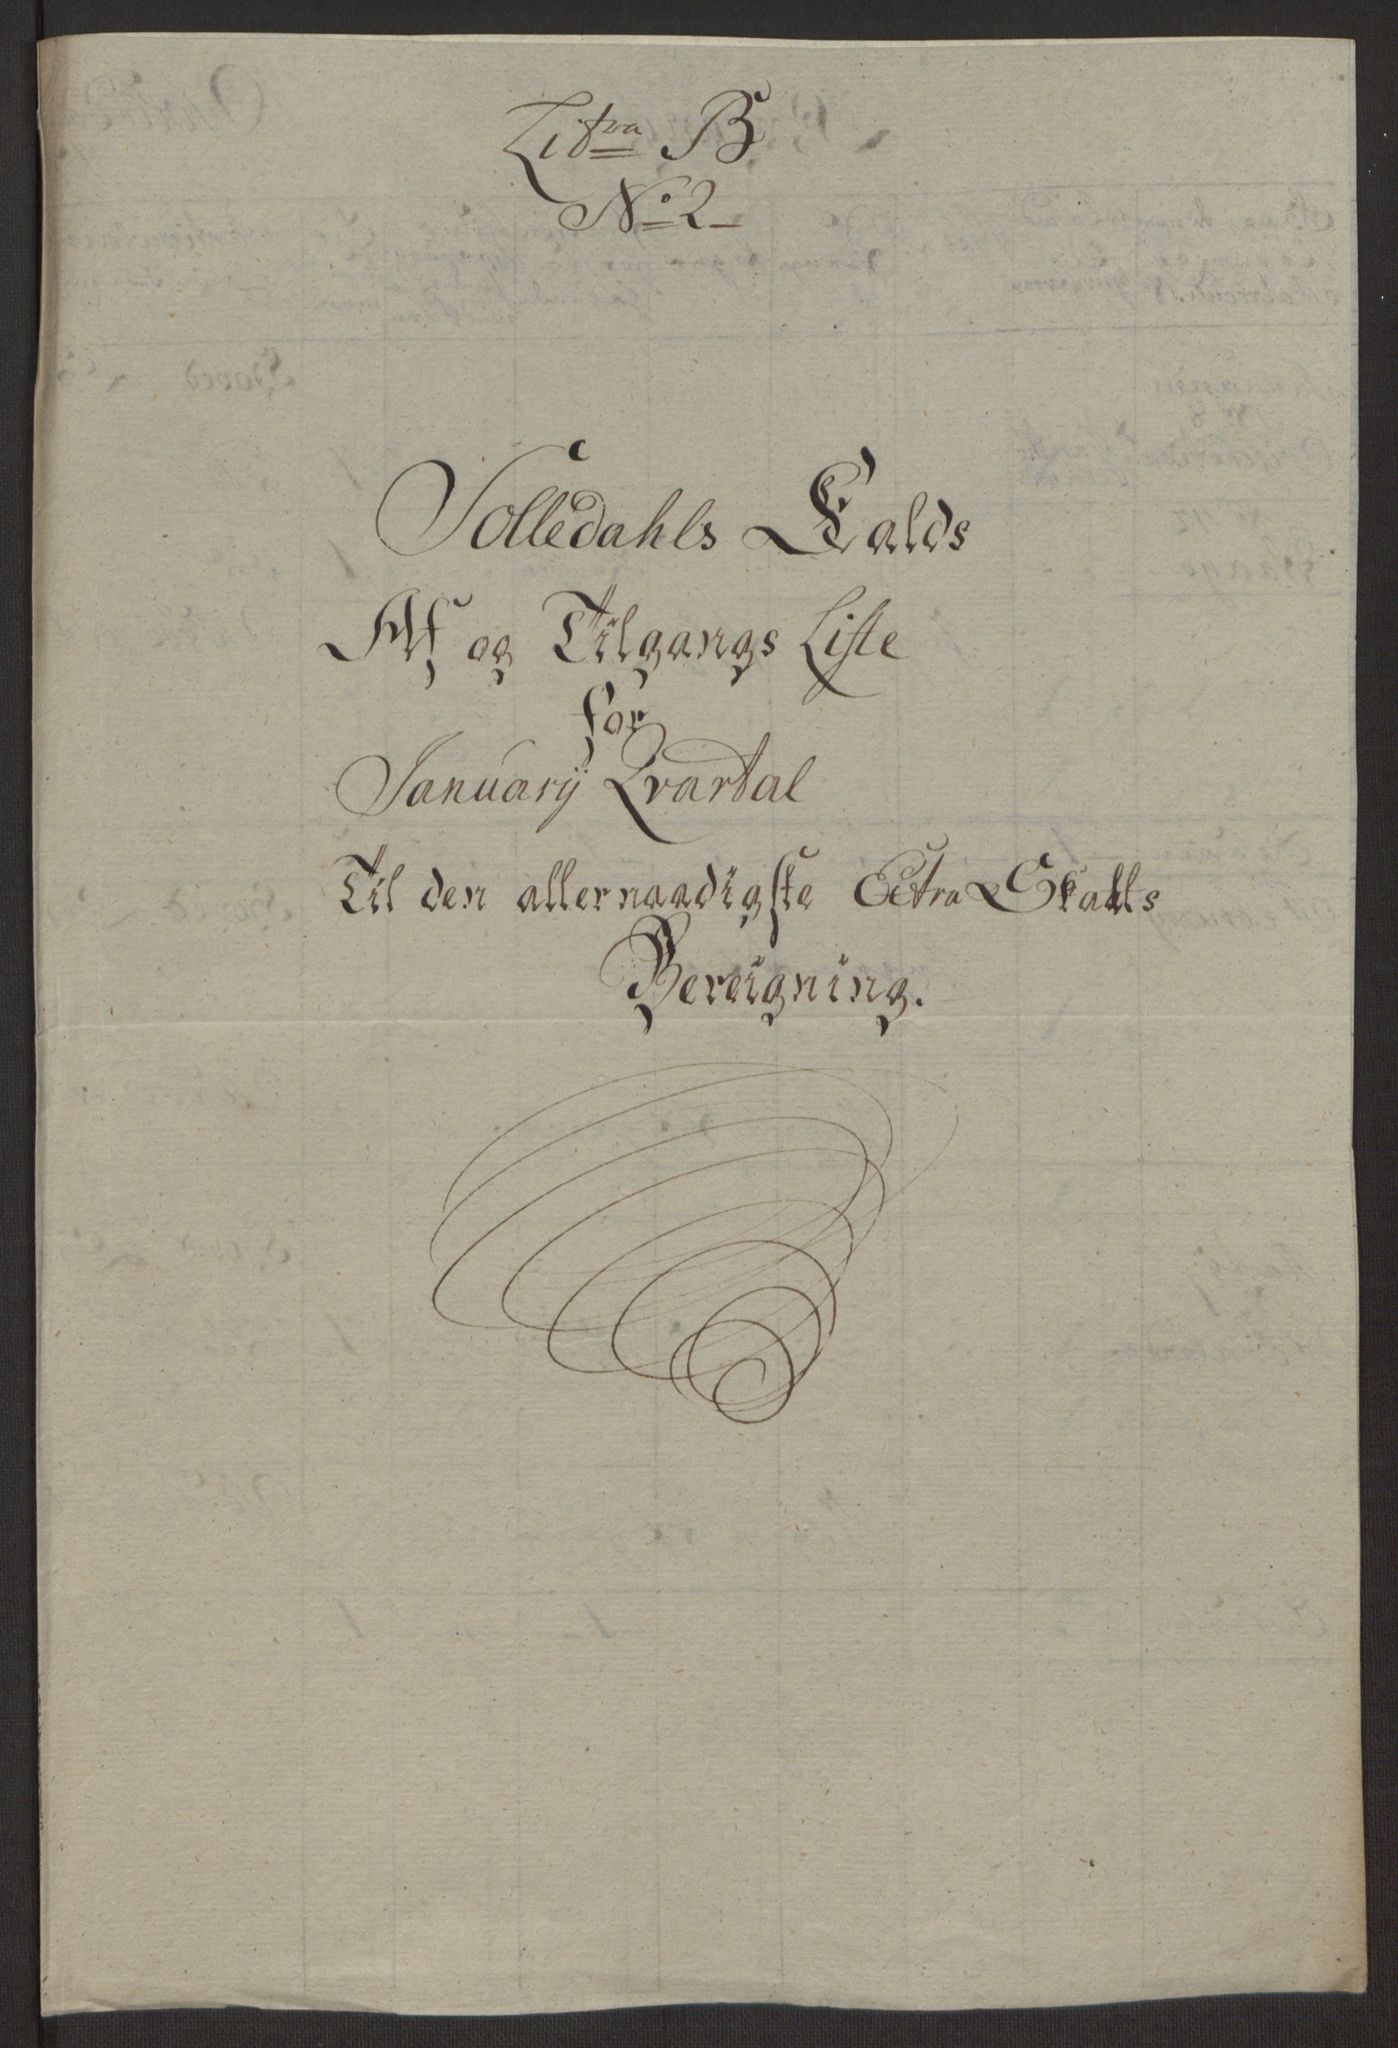 Litra B
No 2
Solledahls Kalds
Af og Tilgangs Liste
for
Januarij Qvartal
Til den allernaadigste Extra Skatts
Bereigning.